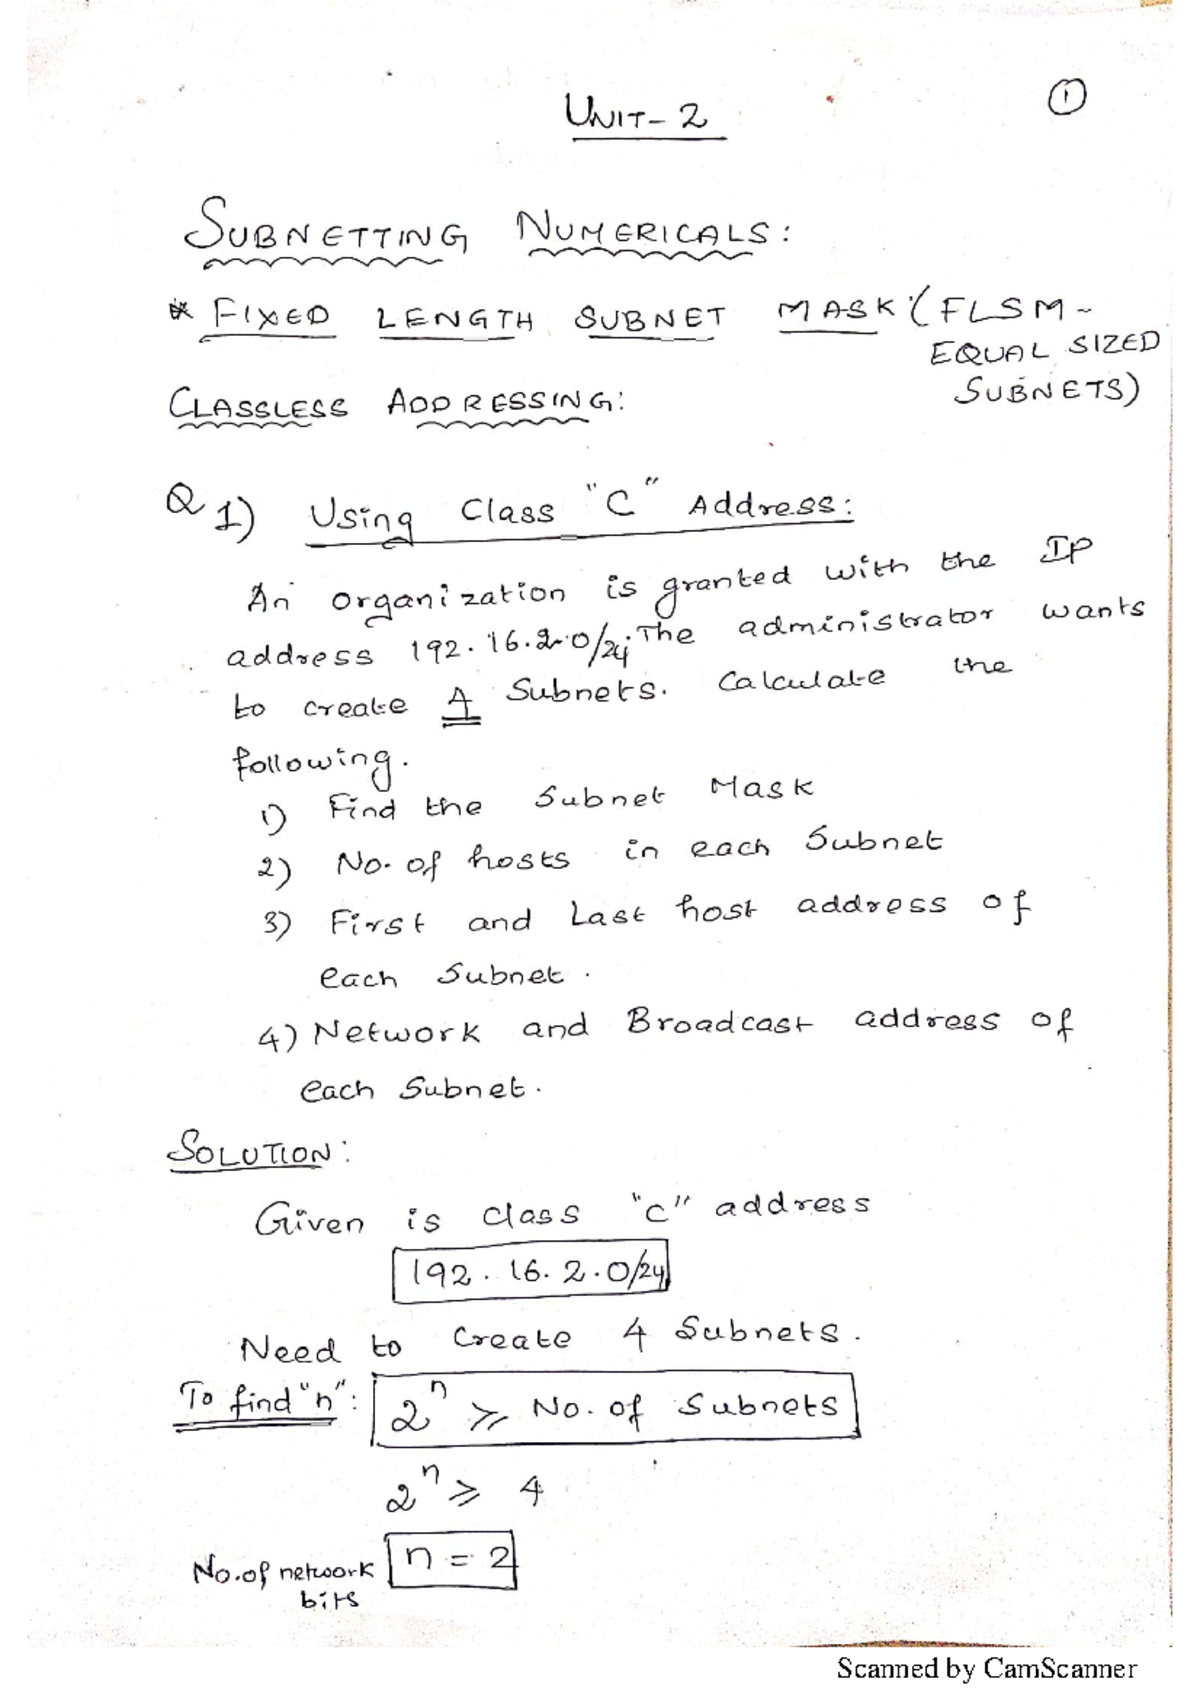 1
UNIT-2
SUBNETTING NUMERICALS:
* FIXED LENGTH SUBNET MASK (FLSM-
EQUAL SIZED
SUBNETS)
CLASSLESS ADDRESSING:
Q 1) Using Class "C" Address:
An organization is granted with the IP
address 192.16.2.0/24. The administrator wants
to create 4 Subnets. Calculate the
following.
1) Find the Subnet Mask
2) No. of hosts in each Subnet
3) First and Last host address of
each Subnet.
4) Network and Broadcast address of
each Subnet.
SOLUTION:
Given is class "C" address
192.16.2.0/24
Need to Create 4 Subnets.
To find "n": 2^n ≥ No. of Subnets
2^n ≥ 4
No. of network n = 2
bits
Scanned by CamScanner